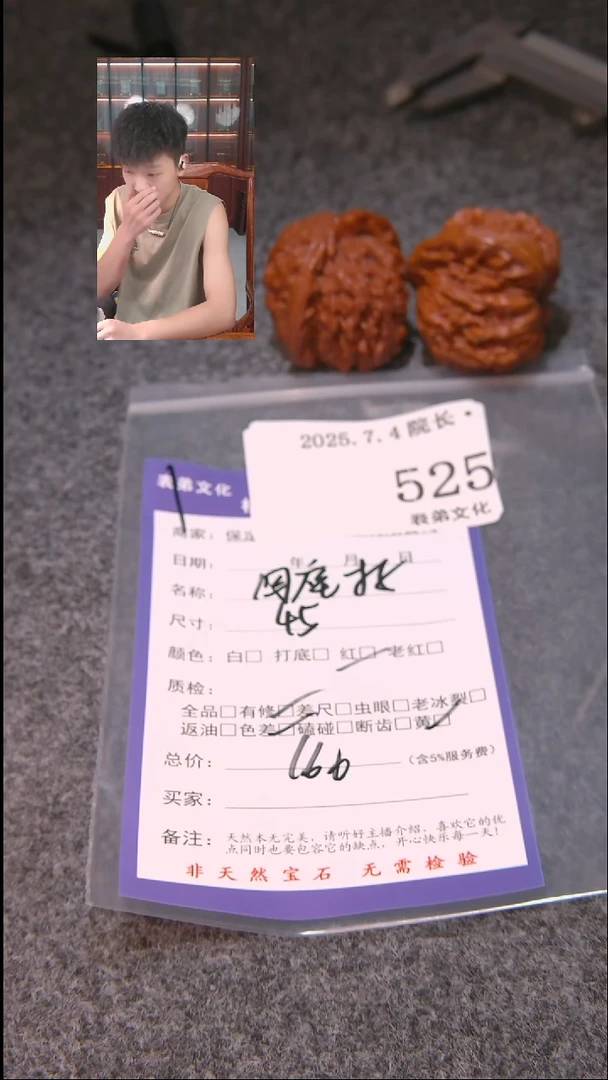 2025.7.4 院长·
525
表弟文化
表弟文化
商家:
日期: 年 月 日
名称:
尺寸: 45
颜色: 白□ 打底□ 红□ 老红□
质检:
全品□有修□差尺□虫眼□老冰裂□
返油□色差□磕碰□断齿□黄□
总价: 166 (含5%服务费)
买家:
备注: 天然本无完美,请听好主播介绍,喜欢它的优
点同时也要包容它的缺点,开心快乐每一天!
非天然宝石 无需检验